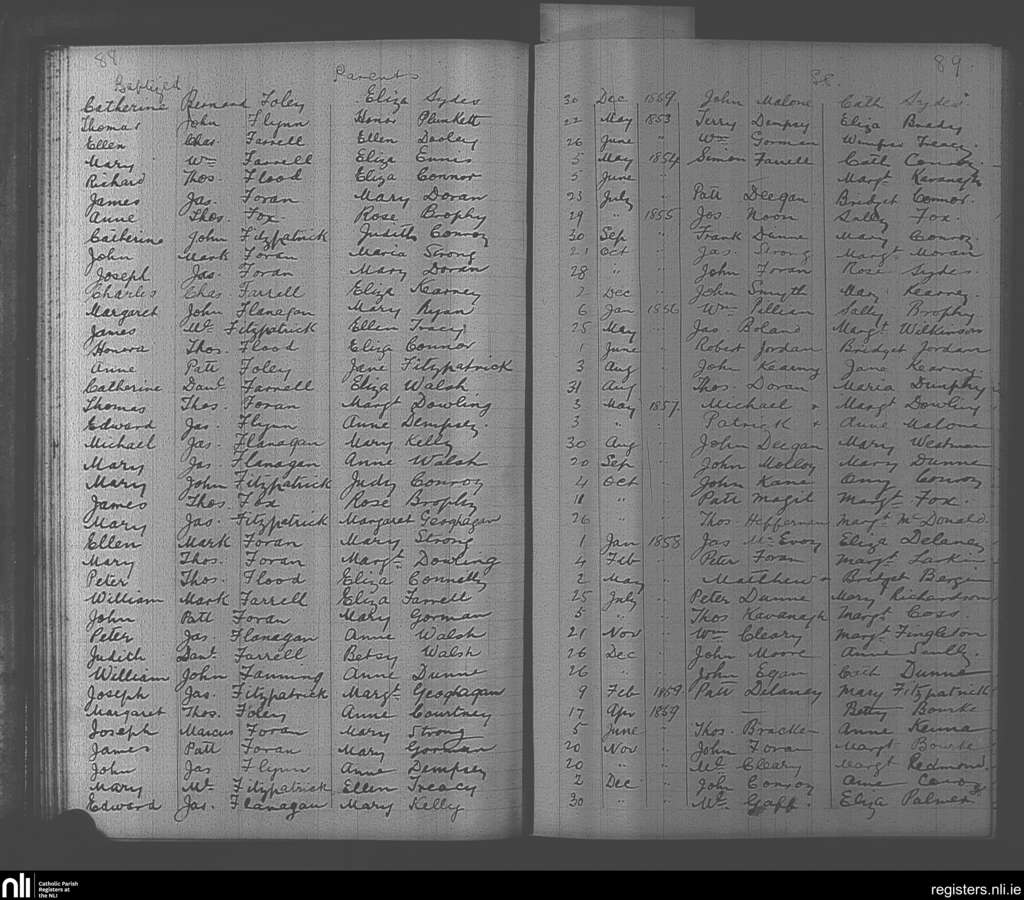 88
89
Baptized Parents Sp.
Catherine Bernard Foley Eliza Sydes 30 Dec 1869 John Malone Cath Sydes
Thomas John Flynn Honor Plunkett 22 May 1853 Terry Dempsy Eliza Brady
Ellen Chas. Farrell Ellen Dooley 26 June " Wm Gorman Winifred Treacy
Mary Wm Farrell Eliza Ennis 5 May 1854 Simon Farrell Cath Conroy
Richard Thos. Flood Eliza Connor 5 June " — Margt Kavanagh
James Jas. Foran Mary Doran 23 July " Patt Deegan Bridget Connor
Anne Thos. Fox Rose Brophy 29 " 1855 Jos. Noon Sally Fox
Catherine John Fitzpatrick Judith Conroy 30 Sep " Frank Dunne Mary Conroy
John Mark Foran Maria Strong 21 Oct " Jas. Strong Margt Moran
Joseph Jas. Foran Mary Doran 28 " " John Foran Rose Sydes
Charles Chas Farrell Eliza Kearney 2 Dec " John Smyth Mary Kearney
Margaret John Flanagan Mary Ryan 6 Jan 1856 Wm Sally Brophy
James Ml. Fitzpatrick Ellen Tracy 25 May " Jas. Boland Margt Wilkinson
Honora Thos. Flood Eliza Connor 1 June " Robert Jordan Bridget Jordan
Anne Patt Foley Jane Fitzpatrick 3 Aug " John Kearny Jane Kearny
Catherine Danl Farrell Eliza Walsh 31 Aug " Thos. Doran Maria Dunphy
Thomas Thos. Foran Margt Dowling 3 May 1857 Michael + Margt Dowling
Edward Jas. Flynn Anne Dempsey 3 " " Patrick + Anne Malone
Michael Jas. Flanagan Mary Kelly 30 Aug " John Deegan Mary Westman
Mary Jas. Flanagan Anne Walsh 20 Sep " John Molloy Mary Dunne
Mary John Fitzpatrick Judy Conroy 4 Oct " John Kane Any Conroy
James Thos. Fox Rose Brophy 11 " " Patt Magil Margt Fox
Mary Jas. Fitzpatrick Margaret Geoghagan 26 " " Thos. Hefferman Margt McDonald
Ellen Mark Foran Mary Strong 1 Jan 1858 Jas McEvoy Eliza Delaney
Mary Thos. Foran Margt Dowling 4 Feb " Peter Foran Margt Larkin
Peter Thos. Flood Eliza Connolly 2 May " Matthew + Bridget Bergin
William Mark Farrell Eliza Farrell 25 July " Peter Dunne Mary Richardson
John Patt Foran Mary Gorman 5 " " Thos Kavanagh Margt Coss
Peter Jas. Flanagan Anne Walsh 21 Nov " Wm Cleary Margt Fingleton
Judith Danl. Farrell Betsy Walsh 26 Dec " John Moore Anne Scully
William John Fanning Anne Dunne 26 " " John Egan Cath Dunne
Joseph Jas. Fitzpatrick Margt Geoghagan 9 Feb 1859 Patt Delaney Mary Fitzpatrick
Margaret Thos. Foley Anne Courtney 17 Apr 1859 — Betty Bourke
Joseph Marcus Foran Mary Strong 5 June " Thos. Bracken Anne Kenna
James Patt Foran Mary Gorman 20 Nov " John Foran Margt Bourke
John Jas Flynn Anne Dempsey 20 " " Ml. Cleary Margt Redmond
Mary Ml. Fitzpatrick Ellen Treacy 2 Dec " John Conroy Anne Conroy
Edward Jas. Flanagan Mary Kelly 30 " " Ml. Gaff Eliza Palmer
nli Catholic Parish
Registers at
the NLI
registers.nli.ie